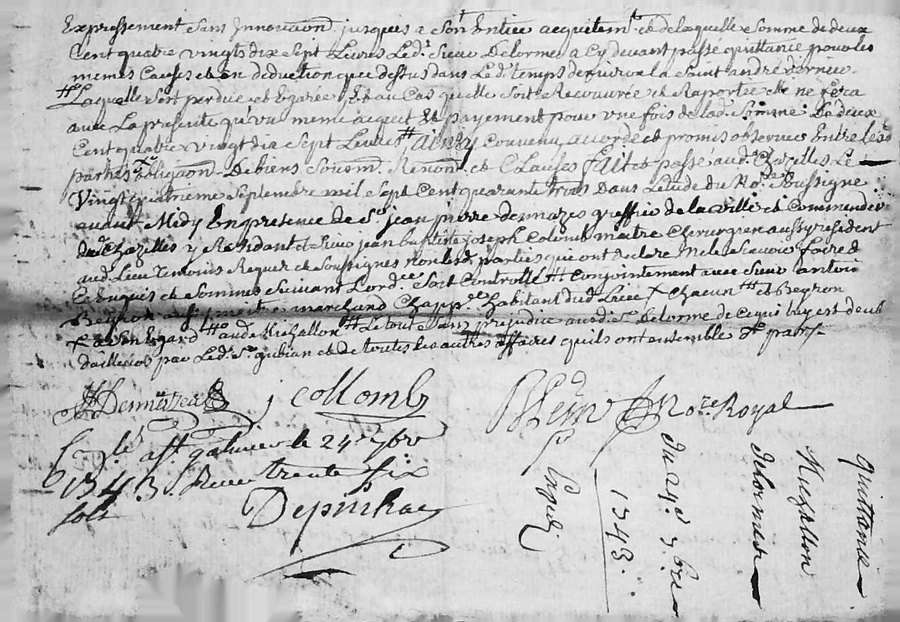 Expressement Sans Innovaōn jusques a Son Entier acquitemt. et de laquelle Somme de deux
Cent quatre vingts dix Sept Livres Ledt. Sieur Delorme a Cy devant passé quittance pour les
memes Causes et en deduction que dessus dans Ledt. temps de
Laquelle S'est perdue et Egarée, Et au Cas quelle Soit Recouvrée et Raportée Elle ne fera
avec La presente qu'un meme acquit et payement pour une fois de lad. Somme De deux
Cent quatre vingt dix Sept Livres ainsy Convenu accordé et promis observer Entre les
parties Obligaōn De biens Soumōn Renonōn et Clauses fait et passé aud. Chazelles Le
Vingt quatrieme Septembre mil Sept Cent quarante trois dans Letude du Nore. Soussigné
avant Midy En presence de Sr. jean pierre Denmazes greffier de la ville et Commanderie
dud. Chazelles y Résidant et Sieur jean baptiste joseph Colomb maitre Chirurgien aussy résident
aud. Lieu Temoins Requis et Soussignés non les parties qui ont declaré ne le Scavoir faire de
Ce Enquis et Sommés Suivant Lordce. Soit Controllé Conjointement avec Sieur antoine
Beyron marchand Chapp. habitant dud. Lieu Chacun et Beyron
Egard aud. Michallon Le tout Sans prejudice aud. Sr. Delorme de Ce qui luy est deub
dailleurs par Led. Sr. gubian et de toutes les autres affaires quils ont ensemble
Denmazes j Collomb Nore Royal
Conlé. a St. galmier le 24e 7bre
1743 Receu trente Six
Sols
Depinhac
Expedi
du 24e. 7bre
1743.
delorme
Michallon
Quittance